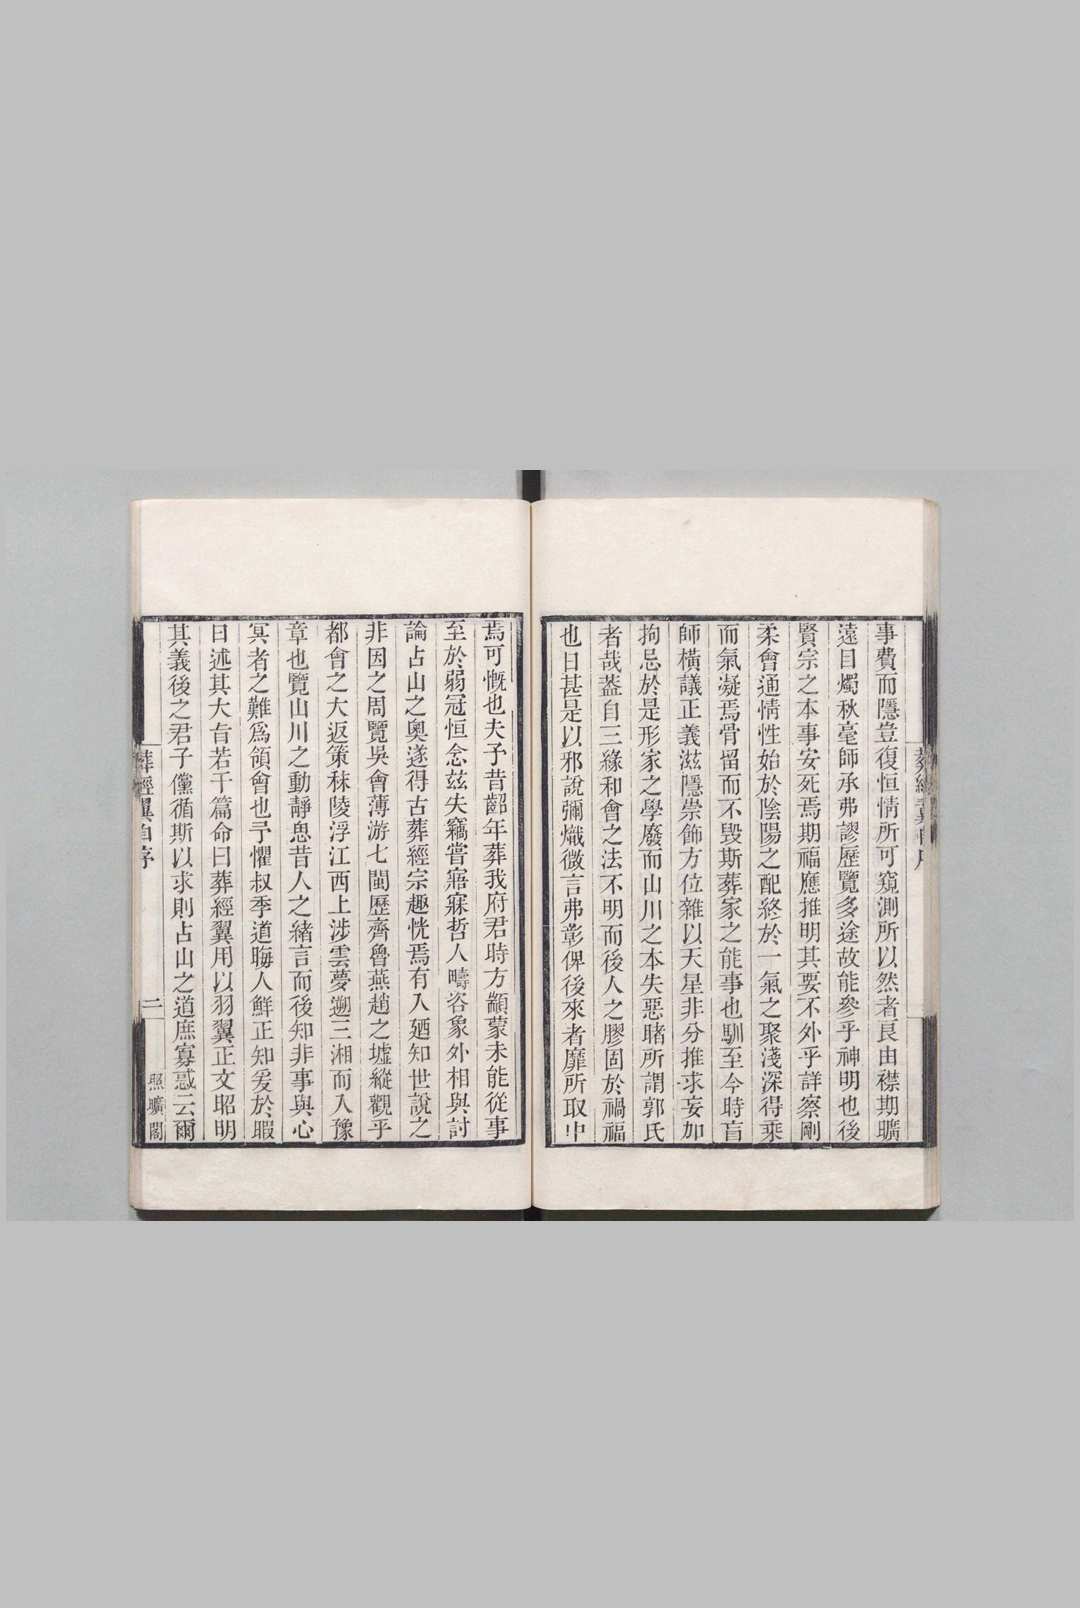 事費而隱豈復恒情所可窺測所以然者良由襟期曠
遠目燭秋毫師承弗謬歷覽多途故能參乎神明也後
賢宗之本事安死焉期福應推明其要不外乎詳察剛
柔會通情性始於陰陽之配終於一氣之聚淺深得乘
而氣凝焉骨留而不毀斯葬家之能事也馴至今時盲
師橫議正義滋隱崇飾方位雜以天星非分推求妄加
拘忌於是形家之學廢而山川之本失惡睹所謂郭氏
者哉葢自三緣和會之法不明而後人之膠固於禍福
也日甚是以邪說彌熾微言弗彰俾後來者靡所取中
焉可慨也夫予昔齠年葬我府君時方顓蒙未能從事
至於弱冠恒念茲失竊嘗寤寐哲人疇咨象外相與討
論占山之奧遂得古葬經宗趣恍焉有入廼知世說之
非因之周覽吳會薄游七閩歷齊魯燕趙之墟縱觀乎
都會之大返策秣陵浮江西上涉雲夢遡三湘而入豫
章也覽山川之動靜思昔人之緒言而後知非事與心
冥者之難爲領會也予懼叔季道晦人鮮正知爰於暇
日述其大旨若干篇命曰葬經翼用以羽翼正文昭明
其義後之君子儻循斯以求則占山之道庶寡惑云爾
葬經翼自序
二
照曠閣